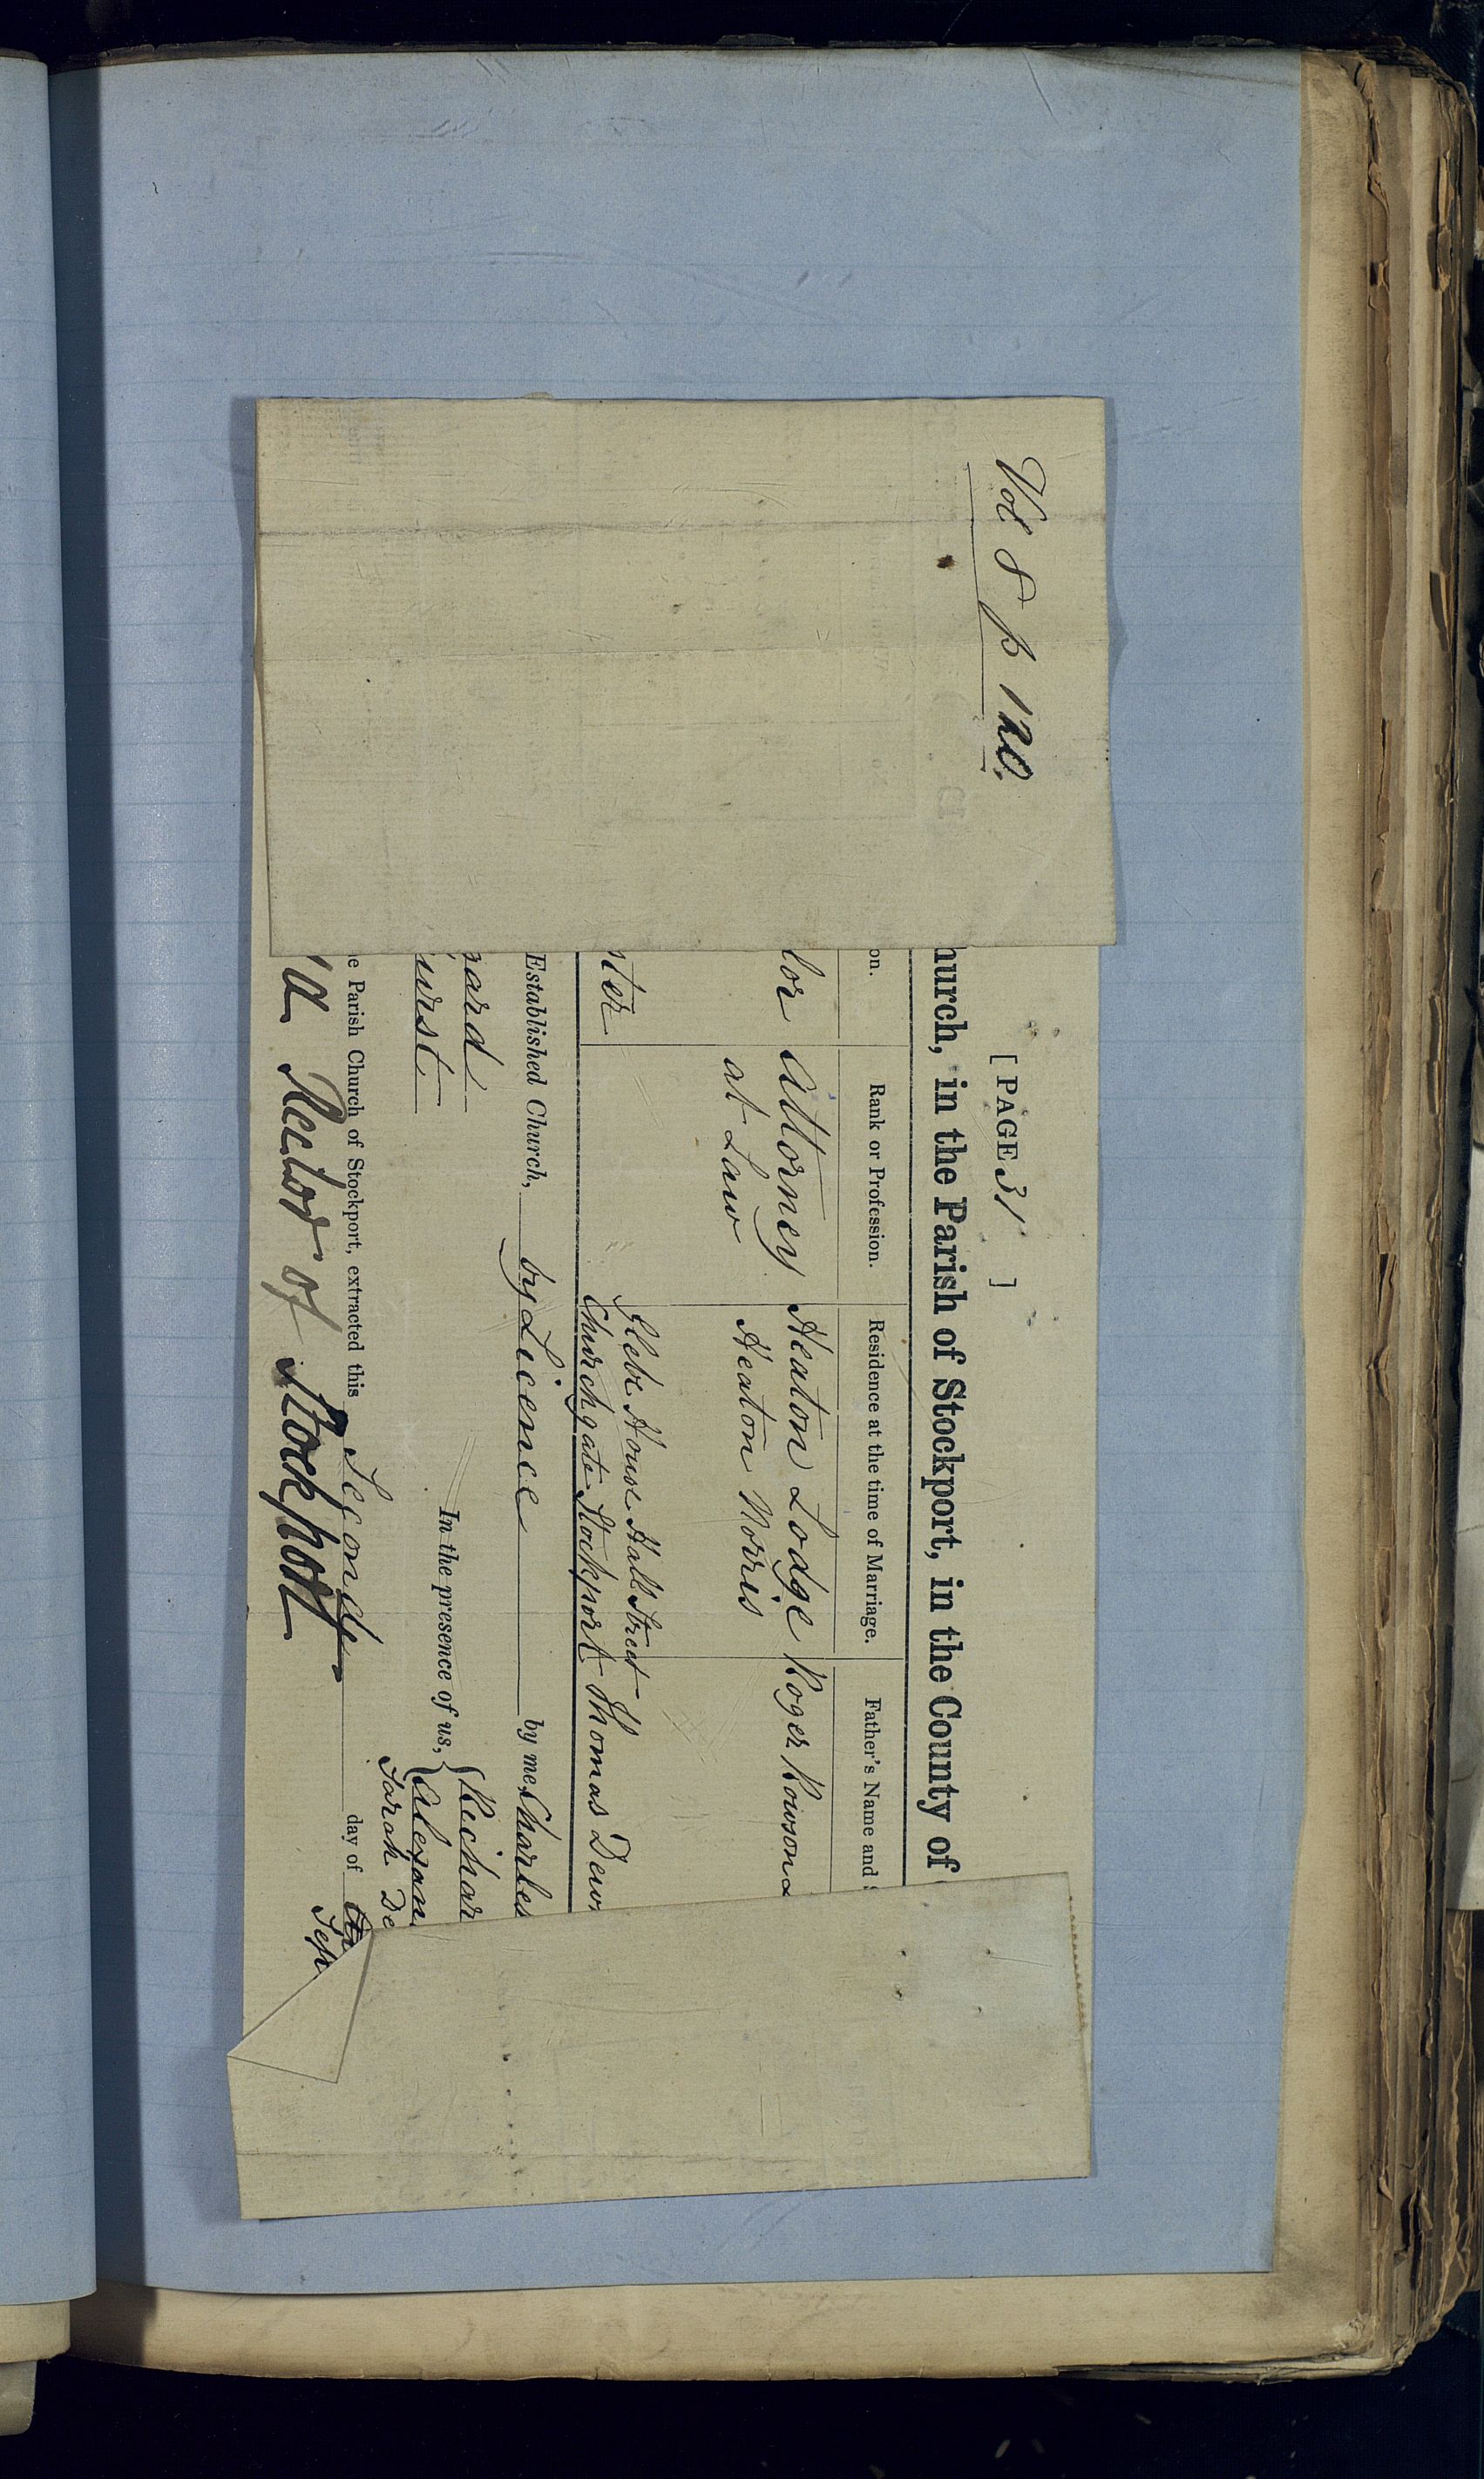 Vol 8 p 120.
[ PAGE 31 ]
hurch, in the Parish of Stockport, in the County of
on.
Rank or Profession.
Residence at the time of Marriage.
Father's Name and
lor
Attorney
at Law
Heaton Lodge
Heaton Norris
Roger Rowson
ster
Glebe House Hall Street
Churchgate Stockport
Thomas Dew
Established Church, by Licence by me, Charles
ard
urst
In the presence of us, { Richar
Alexan
Sarah De
e Parish Church of Stockport, extracted this Second day of
Sep
a Rector of Stockport